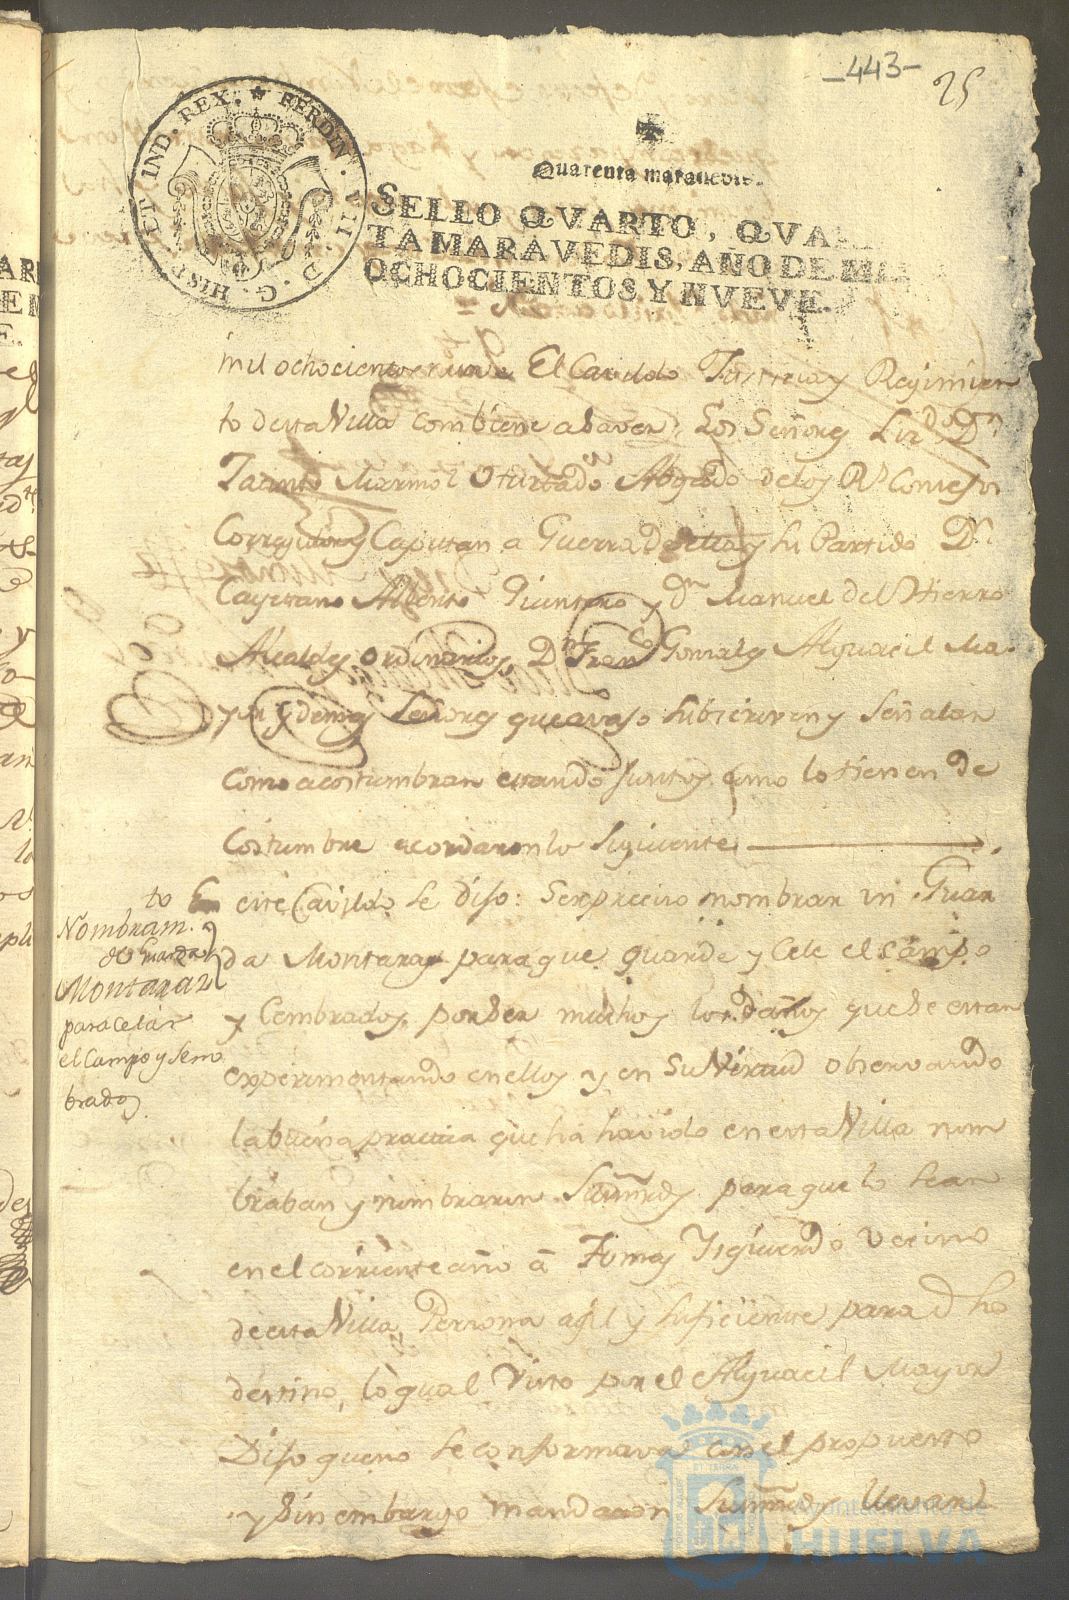 -443-
25
HISP. ET IND. REX. FERDIN. VII. D. G.
Quarenta maravedis.
SELLO QVARTO, QVA
TA MARAVEDIS, AÑO DE MIL
OCHOCIENTOS Y NVEVE.
mil ochocientos nueve El Cavildo Justicia y Regimien
to de esta Villa combiene a saver: Los Señores Lizdo. Dn.
Jacinto Marmol Hurtado Abogado de los Rs. Consejos
Corregidor y Capitan a Guerra de ella y su Partido Dn.
Cayetano Alberto Quintero y Dn. Manuel del Hierro
Alcaldes ordinarios, Dn. Franco. Gonzales Alguacil Ma-
yor y demas Señores que avaso subscriven y señalan
como acostumbran estando juntos como lo tienen de
costumbre acordaron lo siguiente
to En este Cavildo se diso: Ser preciso nombrar un Guar
da Montaraz para que guarde y Cele el campo
y Cembrados, por ser muchos los daños que se estan
experimentando en ellos y en su Virtud observando
la buena practica que ha havido en esta Villa nom
braban y nombraron Sus mrds. para que lo sean
en el corriente año á Tomas Isquierdo Vecino
de esta Villa Persona asil y suficiente para dho
destino, lo qual Visto por el Alguacil Mayor
Diso que no se conformava con el propuesto
y sin embargo mandaron Sus mrds.
Nombram.
de Guarda
Montaraz
para celar
el Campo y Sem
brados
Ayuntamiento de
HUELVA